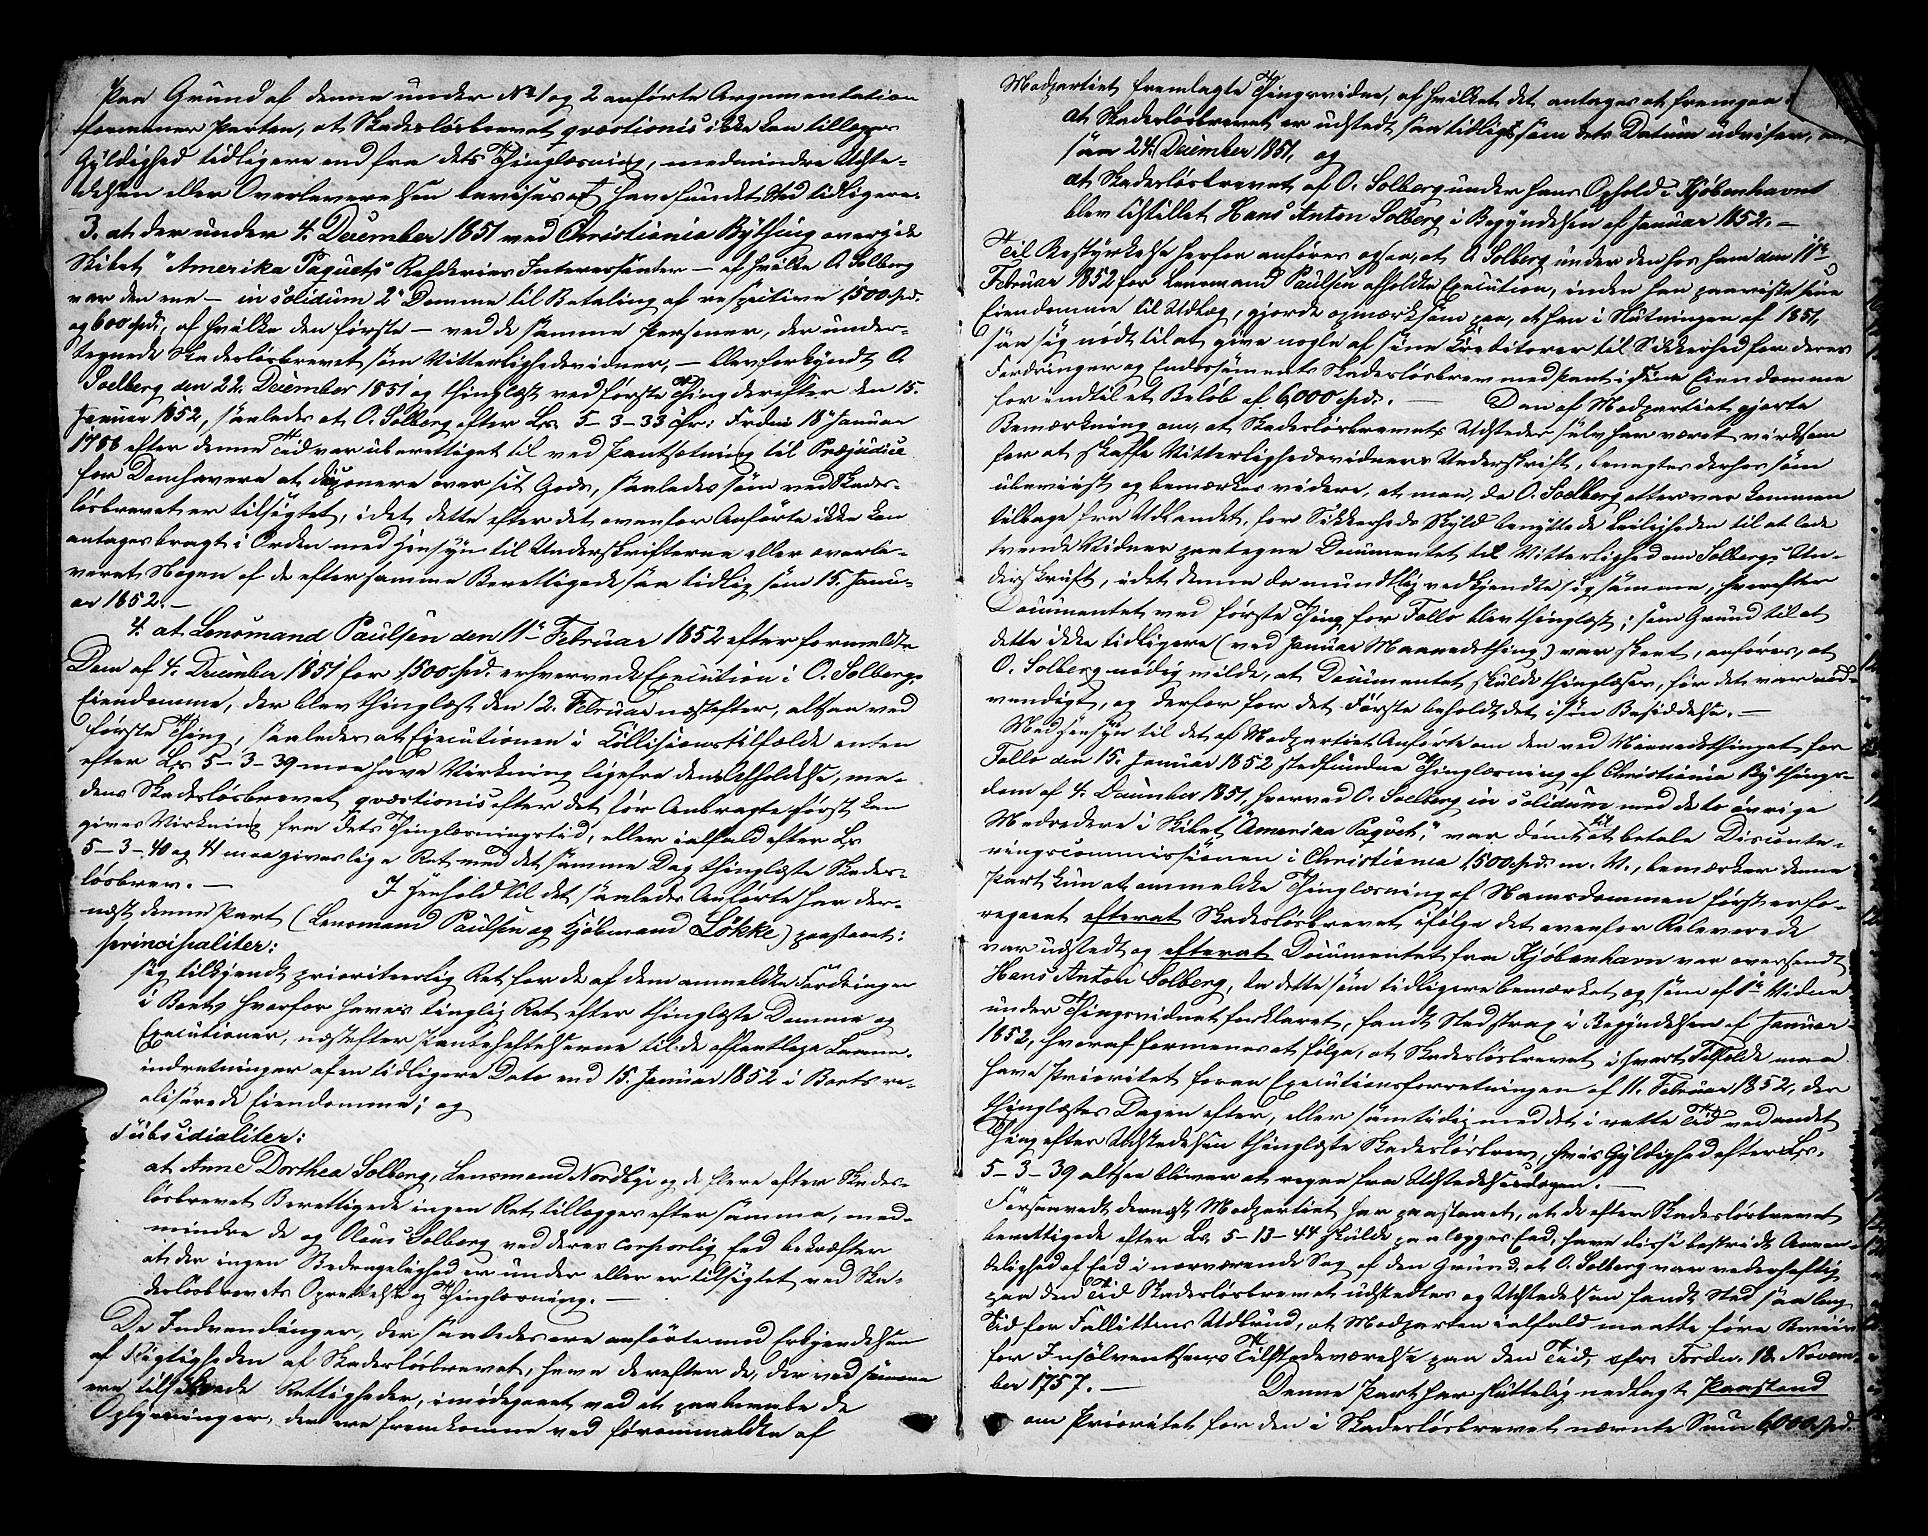 Paa Grund af denne under No 1 og 2 anførte Argumentation
formener Parten, at Skadesløsbrevet qvæstionis ikke kan tillægges
Gyldighed tidligere end fra dets Thinglæsning, medmindre Udste-
delsen eller Overleverelsen bevises at have fundet Sted tidligere.
3. at der under 4. December 1851 ved Christiania Bything overgik
Skibet "Amerika Paquets" Rhederies Interessenter – af hvilke O. Solberg
var den ene – in solidum 2de Domme til Betaling af respective 1,500 Spd.
og 600 Spd., af hvilke den første – ved de samme Personer, der under-
tegnede Skadesløsbrevet som Vitterlighedsvidner, – blev forkyndt O.
Soelberg den 22. December 1851 og thinglæst ved første Thing derefter den 15.
Januar 1852, saaledes at O. Solberg efter Ls. 5-3-33 cfr: Frdn: 18de Januar
1788 efter denne Tid var uberettiget til ved Pantsætning til Præjudice
for Domhavere at disponere over sit Gods, saaledes som ved Skades-
løsbrevet er tilsigtet, idet dette efter det ovenfor Anførte ikke kan
antages bragt i Orden med Hensyn til Underskrifterne eller overle-
veret Nogen af de efter samme Berettigede saa tidlig som 15. Janu-
ar 1852. –
4. at Lensmand Paulsen den 11te Februar 1852 efter formeldte
Dom af 4. December 1851 for 1,500 Spd. erhvervede Execution i O. Solbergs
Eiendomme, der blev thinglæst den 12. Februar næstefter, altsaa ved
første Thing, saaledes at Executionen i Collisionstilfælde enten
efter Ls. 5-3-39 maa have Virkning ligefra dens Afholdelse, me-
dens Skadesløsbrevet qvæstionis efter det før Anbragte først kan
gives Virkning fra dets Thinglæsningstid, eller i alfald efter Ls.
5-3-40 og 41 maa gives lige Ret med det samme Dag thinglæste Skades-
løsbrev. – I Henhold til det saaledes Anførte har der-
næst denne Part (Lensmand Paulsen og Kjøbmand Løkke) paastaaet:
principaliter:
sig tilkjendt prioriteerlig Ret for de af dem anmeldte Fordringer
i Boets hvorfor haves tinglig Ret efter thinglæste Domme og
Executioner, næstefter Pantehæftelserne til de offentlige Laane-
indretninger af en tidligere Dato end 15. Januar 1852 i Boets re-
aliserede Eiendomme; og
subsidialiter:
at Anne Dorthea Solberg, Lensmand Nordbye og de flere efter Skades-
løsbrevet Berettigede ingen Ret tillægges efter samme, med-
mindre de og Olaus Solberg ved deres corporlig Eed bekræfter
at der ingen Bedragelighed er under eller er tilsigtet ved Ska-
desløsbrevets Oprettelse og Thinglæsning. –
De Indvendinger, der saaledes ere anførte mod Erkjendelsen
af Rigtigheden af Skadesløsbrevet, have derefter de, der ved samme
ere tilsikrede Rettigheder, imødegaaet ved at paaberaabe de
Oplysninger, der ere fremkomne ved førommeldte af
Modpartiet fremlagte Thingsvidne, af hvilket det antages at fremgaa
at Skadesløsbrevet er udstedt saa tidligt som dets Datum udviser,
saa 24. December 1851, og
at Skadesløsbrevet af O. Solberg under hans Ophold i Kjøbenhavn
blev tilstillet Hans Anton Solberg i Begyndelsen af Januar 1852. –
Til Bestyrkelse herfor anføres ogsaa, at O. Solberg under den hos ham den 11te
Februar 1852 for Lensmand Paulsen afholdte Execution, inden han paaviste sine
Eiendomme til Udlæg, gjorde opmærksom paa, at han i Slutningen af 1851,
saa sig nødt til at give nogle af sine Creditorer til Sikkerhed for deres
Fordringer og Endossements Skadesløsbrev med Pant i sine Eiendomme
for indtil et Beløb af 6,000 Spd. – Den af Modpartiet gjorte
Bemærkning om, at Skadesløsbrevets Udsteder selv har været virksom
for at skaffe Vitterlighedsvidners Underskrift, benegtes derhos som
ubeviist og bemærkes videre, at man, da O. Soelberg atter var kommen
tilbage fra Udlandet, for Sikkerheds Skyld benyttede Leiligheden til at lade
tvende Vidner paategne Documentet til Vitterlighed om Solbergs Un-
derskrift, idet denne da mundtlig vedkjendte sig samme, hvorefter
Documentet ved første Thing for Follo blev thinglæst; som Grund til at
dette ikke tidligere (ved Januar Maanedsthing) var skeet, anføres, at
O. Solberg nødig vilde, at Documentet skulde thinglæses, før det var nød-
vendigt, og derfor for det Første beholdt det i sin Besiddelse. –
Med Hensyn til det af Modpartiet Anførte om den ved Maanedsthinget for
Follo den 15. Januar 1852 stedfundne Thinglæsning af Christiania Bythings-
dom af 4. December 1851, hvorved O. Soelberg in solidum med de to øvrige
Medredere i Skibet "Amerika Paqvet," var dømt til at betale Disconte-
ringscommissionen i Christiania 1,500 Spd. m. V., bemærker denne
Part kun at ommeldte Thinglæsning af Namsdommen først er fo-
regaaet efterat Skadesløsbrevet ifølge det ovenfor Releverede
var udstedt og efterat Documentet fra Kjøbenhavn var oversendt
Hans Anton Solberg, da dette som tidligere bemærket og som af 1ste Vidne
under Thingsvidnet forklaret, fandt Sted strax i Begyndelsen af Januar
1852, hvoraf formenes at følge, at Skadesløsbrevet i hvert Tilfælde maa
have Prioritet foran Executionsforretningen af 11. Februar 1852, der
thinglæstes Dagen efter, eller samtidig med det i rette Tid ved andet
Thing efter Udstedelsen thinglæste Skadesløsbrev, hvis Gyldighed efter Ls.
5-3-39 altsaa bliver at regne fra Udstedelsesdagen. –
Forsaavidt dernæst Modpartiet har paastaaet, at de efter Skadesløsbrevet
berettigede efter Ls. 5-13-44 skulde paalægges Eed, have disse bestridt Anven-
delighed af Eed i nærværende Sag af den Grund, at O. Solberg var vederheftig
paa den Tid Skadesløsbrevet udstedtes og Udstedelsen fandt Sted saa lang
Tid før Fallittens Udbrud, at Modparten ialfald maatte føre Beviis
for Insolventsens Tilstedeværelse paa den Tid, cfr. Fordn. 18. Novem-
ber 1757. – Denne Part har sluttelig nedlagt Paastand
om Prioritet for den i Skadesløsbrevet nævnte Sum 6000 Spd.